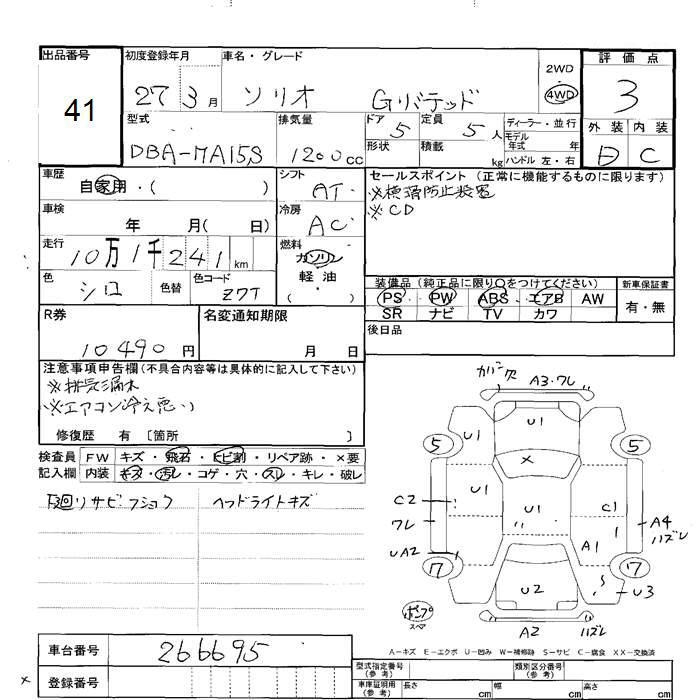 出品番号
41
初度登録年月
27 3 月
車名・グレード
ソリオ Gリミテッド
2WD
4WD
評価点
3
外装 内装
D C
型式
DBA-MA15S
排気量
1200 cc
ドア 5
形状
定員 5 人
積載 kg
ディーラー・並行
モデル年式 年
ハンドル 左・右
車歴
自家用・( )
シフト
AT
セールスポイント (正常に機能するものに限ります)
※横滑防止装置
※CD
車検
年 月( 日)
冷房
AC
走行
10万1千241 km
燃料
ガソリン
軽油
・
( )
色
シロ
色替
色コード
Z7T
装備品 (純正品に限り○をつけてください)
PS PW ABS エアB AW
SR ナビ TV カワ
新車保証書
有・無
R券
10490 円
名変通知期限
月 日
後日品
注意事項申告欄 (不具合内容等は具体的に記入して下さい)
※排気漏れ
※エアコン冷え悪い
修復歴 有 〔箇所 〕
検査員
記入欄
FW キズ・飛石・ヒビ割・リペア跡・×要
内装 キズ・汚レ・コゲ・穴・スレ・キレ・破レ
下廻リサビ・フショク
ヘッドライトキズ
カバー欠
A3・ワレ
U1
U1
5
5
×
U1
U1
C2
ワレ
C1
A4
ハズレ
UA2
A1
7
7
U2
U3
ポンプ
スペア
A2
ハズレ
A-キズ E-エクボ U-凹み W-補修跡 S-サビ C-腐食 XX-交換済
車台番号
266695
×
登録番号
型式指定番号
(参考)
類別区分番号
(参考)
車庫証明用
(参考)
長さ cm
幅 cm
高さ cm